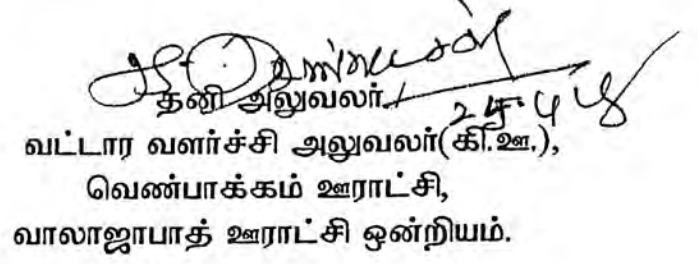 தனி அலுவலர் /
வட்டார வளர்ச்சி அலுவலர்(கி.ஊ.),
வெண்பாக்கம் ஊராட்சி,
வாலாஜாபாத் ஊராட்சி ஒன்றியம்.